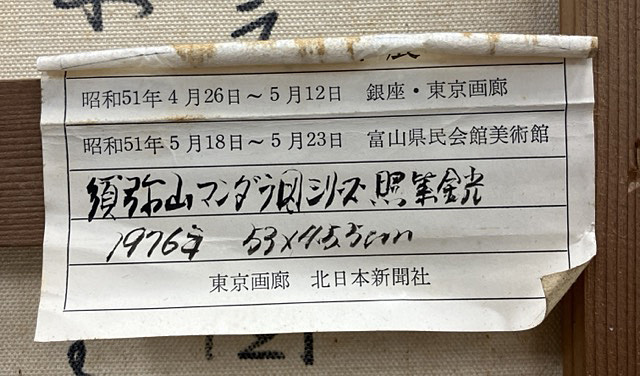 展
昭和51年4月26日～5月12日　銀座・東京画廊
昭和51年5月18日～5月23日　富山県民会館美術館
須弥山マンダラ図シリーズ
1976年　53×45.5cm
東京画廊　北日本新聞社
[2]